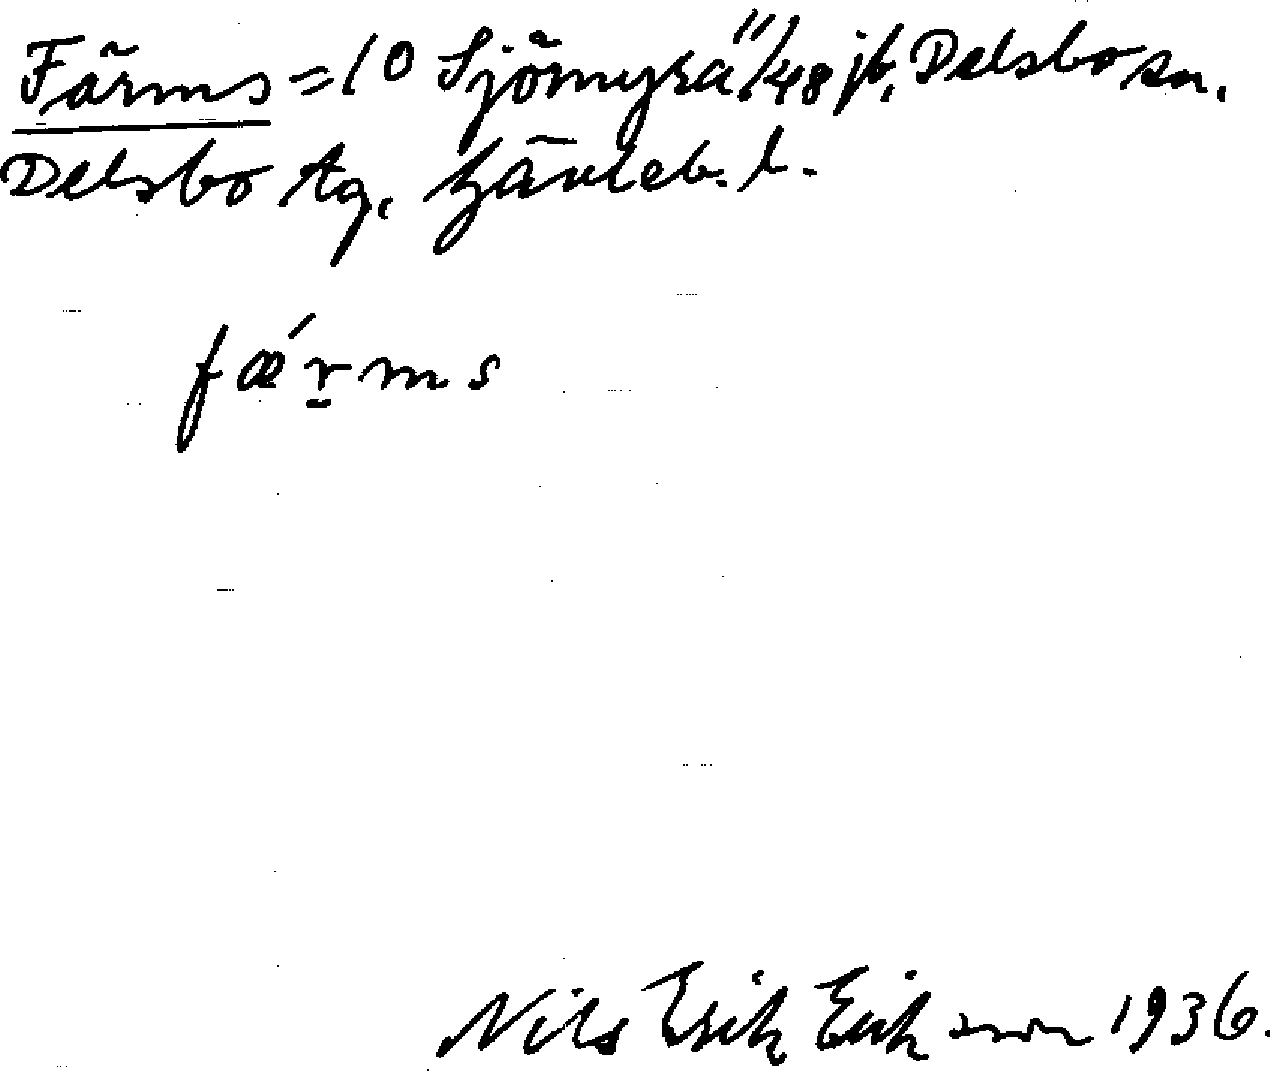 Färms = 10 Sjömyra 11/48 jb, Delsbo sn.
Delsbo tg, Gävleb. l.
fǽr̲ms
Nils Erik Erikson 1936.